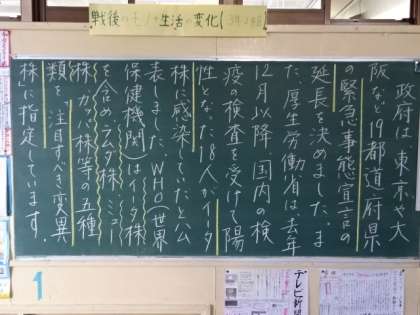 戦後の
生活の変化
政府は、東京や大
阪など19都道府県
の緊急事態宣言の
延長を決めました。ま
た、厚生労働省は、去年
12月以降、国内の検
疫の検査を受けて陽
性となった18人がイータ
株に感染していたと公
表しました。WHO(世界
保健機関)はイータ株
を含め、ラムダ株、ミュー
株、カッパ株等の五種
類を「注目すべき変異
株」に指定しています。
1
テレビ新聞